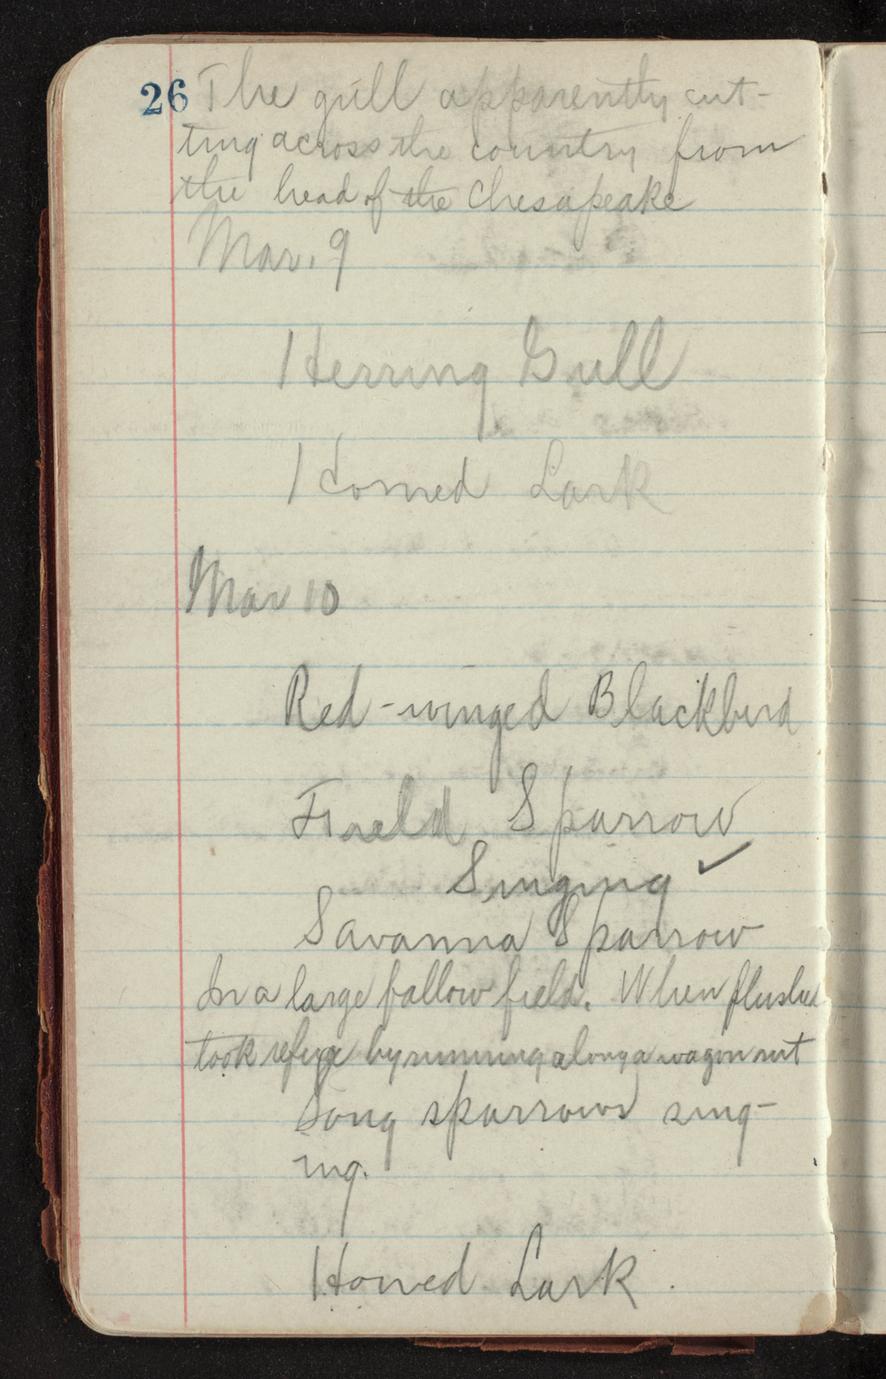 26 The gull apparently cut-
ting across the country from
the head of the Chesapeake
Mar. 9
Herring Gull
Horned Lark
Mar 10
Red-winged Blackbird
Field Sparrow
Singing ✓
Savanna Sparrow
In a large fallow field. When flushed
took refuge by running along a wagon rut
Song sparrows sing-
ing.
Horned Lark.